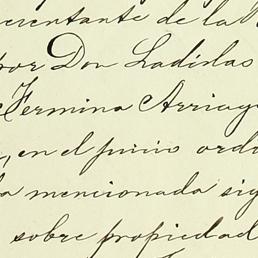 erentante de la
por Don Ladislas
Fermina Arriag
, en el juicio ord
a mencionada sig
sobre propiedad